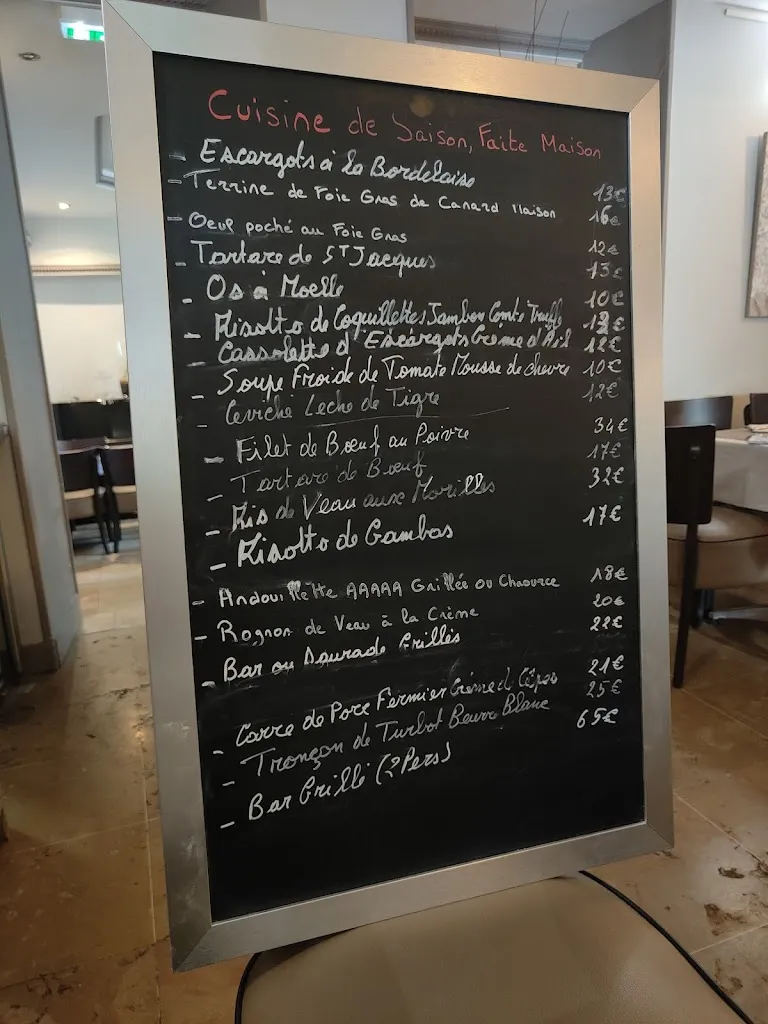 Cuisine de Saison, Faite Maison
- Escargots à la Bordelaise 13€
- Terrine de Foie Gras de Canard Maison 16€
- Oeuf poché au Foie Gras 12€
- Tartare de St Jacques 13€
- Os à Moelle 10€
- Risotto de Coquillettes Jambon Comté Truffe
- Cassolette d'Escargots Crème d'Ail 12€
- Soupe Froide de Tomate Mousse de chevre 10€
- Ceviché Leche de Tigre 12€
- Filet de Bœuf au Poivre 34€
- Tartare de Bœuf 17€
- Ris de Veau aux Morilles 32€
- Risotto de Gambas 17€
- Andouillette AAAAA Grillée ou Chaource 18€
- Rognon de Veau à la Crème 20€
- Bar ou Daurade Grillés 22€
- Carre de Porc Fermier Crème d Cèpes 21€
- Tronçon de Turbot Beurre Blanc 25€
- Bar Grillé (2 Pers) 65€